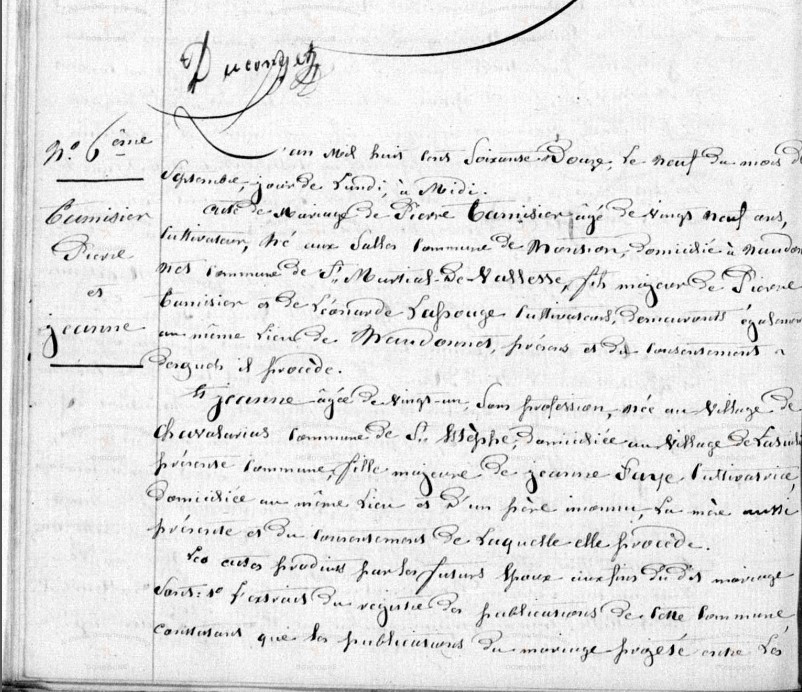 Ducouget
N.o 6ème
Camisier
Pierre
et
jeanne
an mil huit cent Soixante Douze, Le neuf du mois de
Septembre, jour de Lundi, à Midi.
acte de Mariage de Pierre Camisier âgé de vingt neuf ans,
Cultivateur, né aux Salles Commune de Monson, domicilié à Naudon
net Commune de St. Martial-De-Vallesse, fils majeur de Pierre
Camisier et de Léonarde Lafrouge Cultivateurs, demeurants également
au même Lieu de Naudonnet, présens et du Consentement
desquels il procède.
Et jeanne âgée de vingt-un, Sans profession, née au Village de
Commune de St. Estèphe, domiciliée au Village de
présente Commune, fille majeure de jeanne Faye Cultivatrice,
domiciliée au même Lieu et d'un père inconnu, La mère aussi
présente et du Consentement de Laquelle elle procède.
Les actes produits par les futurs Epoux aux fins du dit mariage
Sont: 1o L'extrait du registre des publications de Cette Commune,
constatant que les publications du mariage projeté entre Les